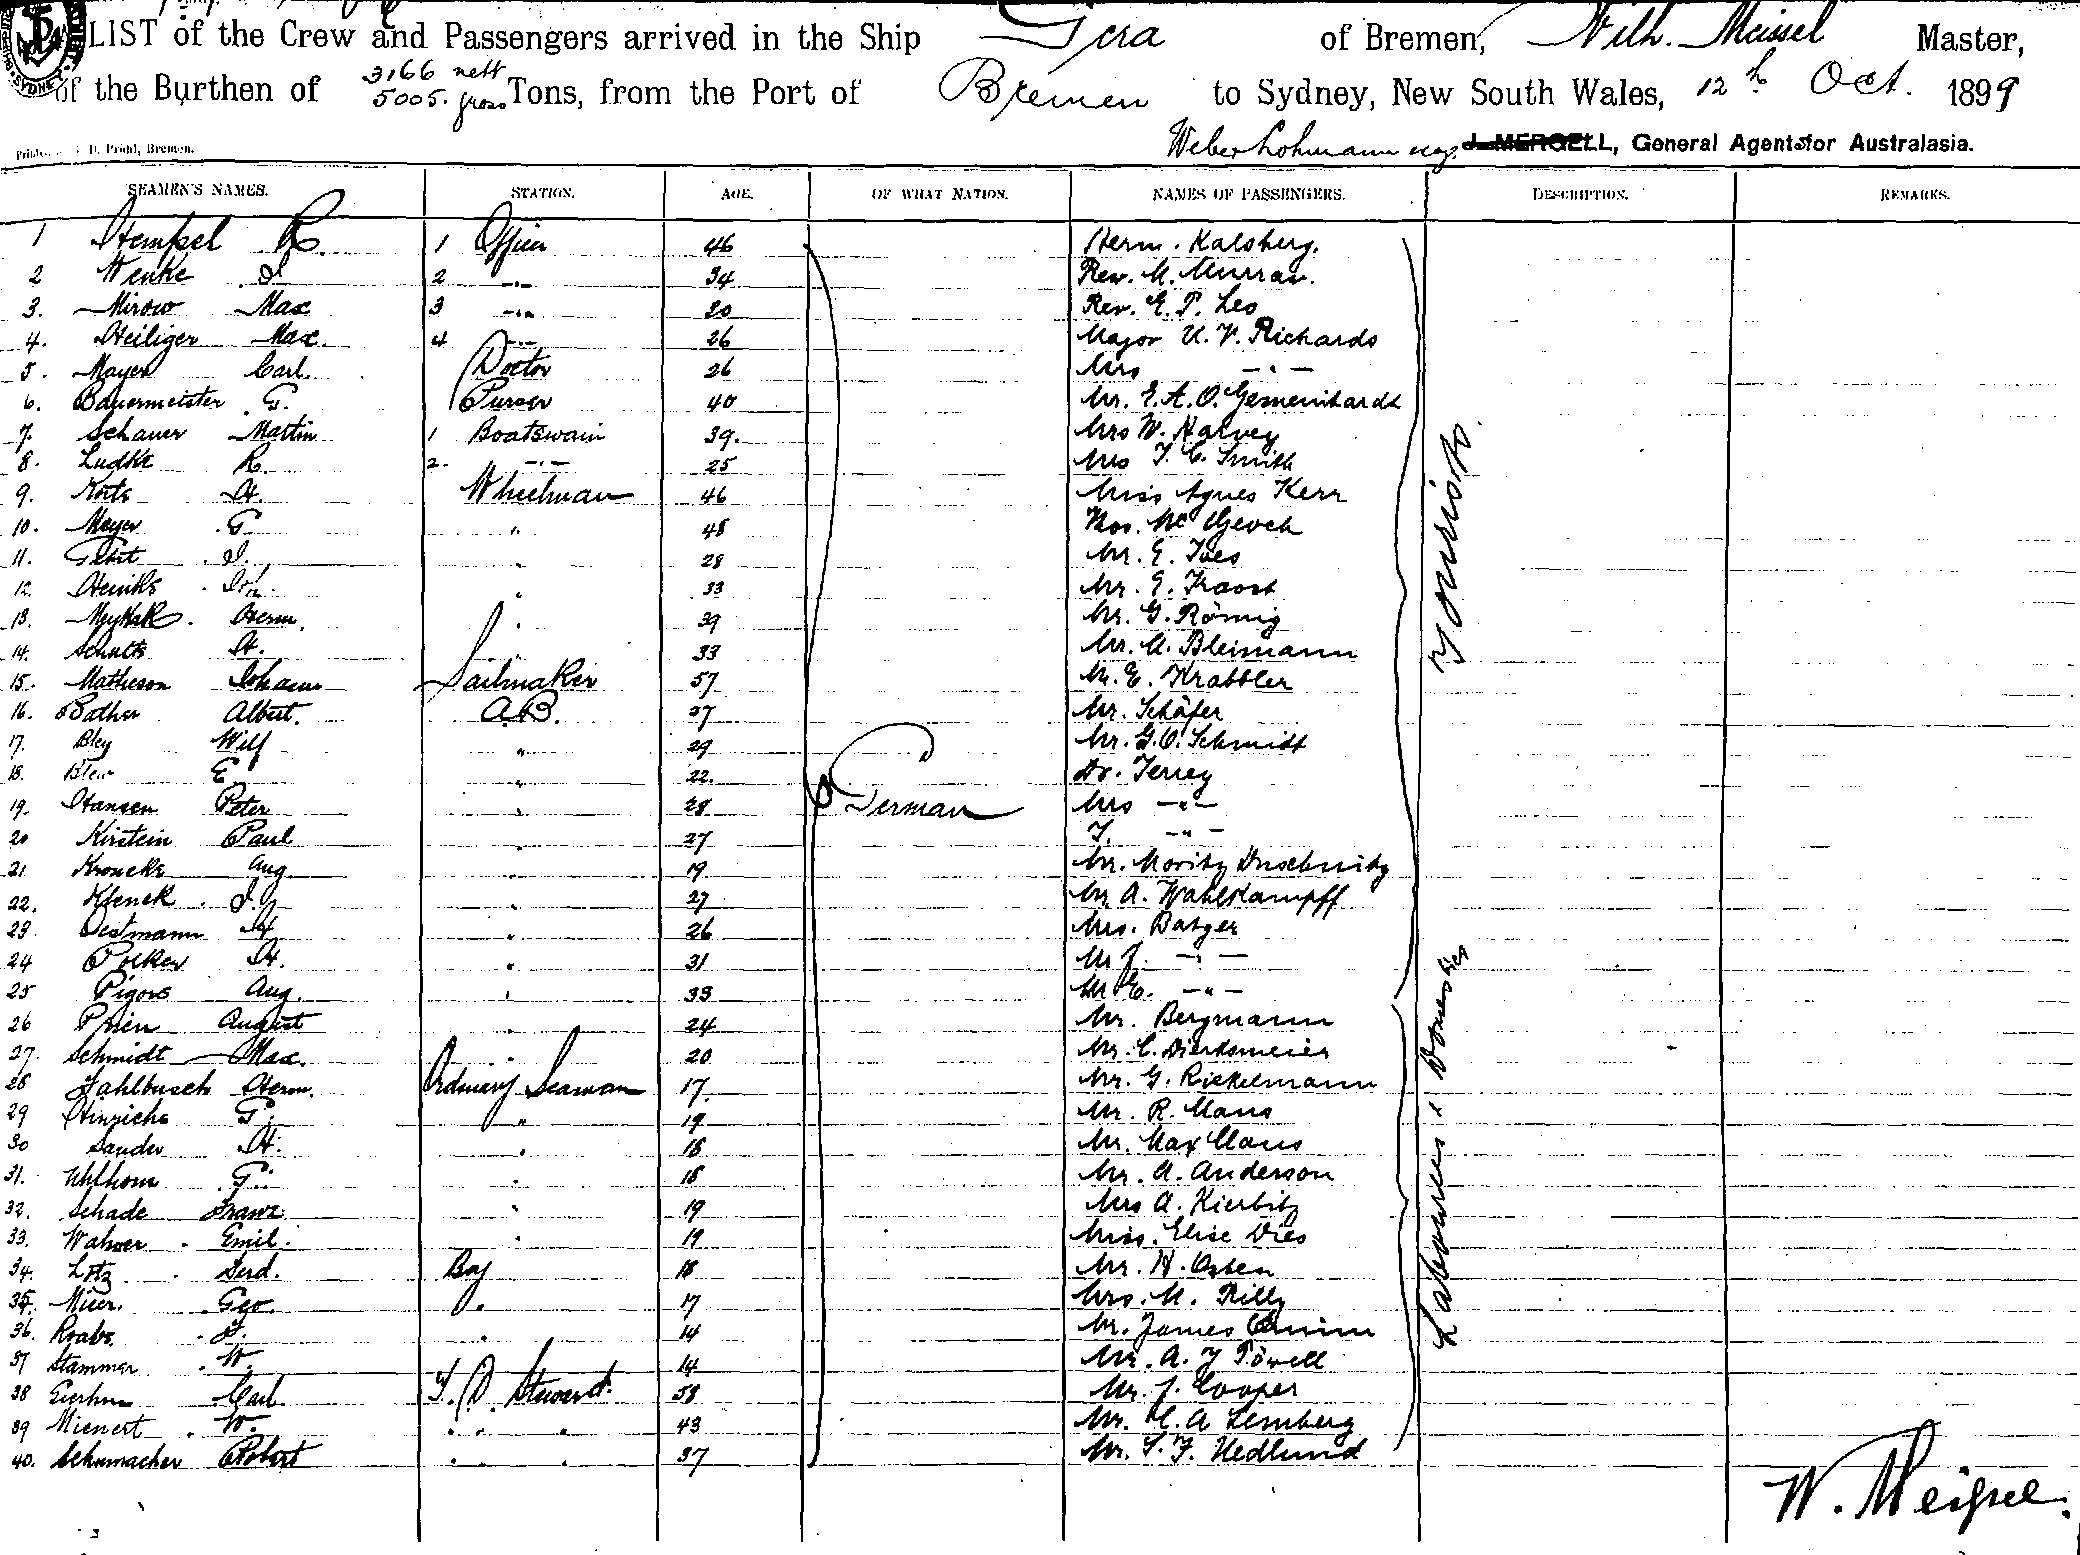 LIST of the Crew and Passengers arrived in the Ship Gera of Bremen, Wilh. Meissel Master,
of the Burthen of 3166 nett 5005. gross Tons, from the Port of Bremen to Sydney, New South Wales, 12th Oct. 1899
Weber Lohmann General Agents for Australasia.
D. Pruhl, Bremen.
SEAMEN'S NAMES. STATION. AGE. OF WHAT NATION. NAMES OF PASSENGERS. DESCRIPTION. REMARKS.
1 Hempel R. 1 Officer 46 Herm. Kalsberg.
2 Wenke 2 -"- 34 Rev. M. Murray.
3. Mirow Max 3 -"- 20 Rev. E. P. Leo
4. Heiliger Max. 4 -"- 26 Major U. V. Richards
5. Mayer Carl. Doctor 26 Mrs -"-
6. Bauermeister G. Purser 40 Mr. E. A. O. Gemeinhardt
7. Schauer Martin 1 Boatswain 39. Mrs W. Harvey
8. Ludtke R. 2. -"- 25 Mrs T. C. Smith
9. Korts H. Wheelman 46 Miss Agnes Kerr
10. Meyer G. " 48 Thos. Mc
11. " 28 Mr. E. Ives
12. Joh. " 33 Mr. E.
13. Herm. " 39 Mr. G. Römig
14. Schults H. " 33 Mr. A. Bleimann
15. Matheson Johann Sailmaker 57 Mr. E. Krabbler
16. Bather Albert. A.B. 27 Mr. Schäfer
17. Bley Wilf " 29 Mr. G. O. Schmidt
18. E. " 22. Dr. Terrey
19. Hansen Peter " 28 German Mrs -"-
20 Kirstein Paul " 27 T. -"-
21 Kroncke Aug. " 19 Mr. Moritz
22. Klenck " 27 Mr. A. Wahlkampff
23. Oestmann H. " 26 Mrs. Batger
24 H. " 31 Mr J. -"-
25 Pigors Aug. " 33 Mr C. -"-
26 Prien August " 24 Mr. Bergmann
27. Schmidt Max. " 20 Mr. C. Dierksmeier
28 Fahlbusch Herm. Ordinary Seaman 17. Mr. G. Rickelmann
29 Hinrichs G. " 19 Mr. R. Maus
30 Sander H. " 18 Mr. Max Maus
31. Uhlhorn G. " 18 Mr. A. Anderson
32. Schade Franz " 19 Mrs A. Kierbitz
33. Emil. " 19 Miss. Elise Dies
34. Lotz Ferd. Boy 18 Mr. H.
35. Geo. " 17 Mrs. M.
36. Raabe " 14 Mr. James
37 Stammer W. " 14 Mr. A. J Powell
38 Carl Steward. 58 Mr. J. Cooper
39 Mienert W. " " 43 Mr. C. A Lemberg
40. Schumacher Robert " " 37 Mr. S. F. Hedlund
Tourists.
Labourers & Domestics
W. Meissel.